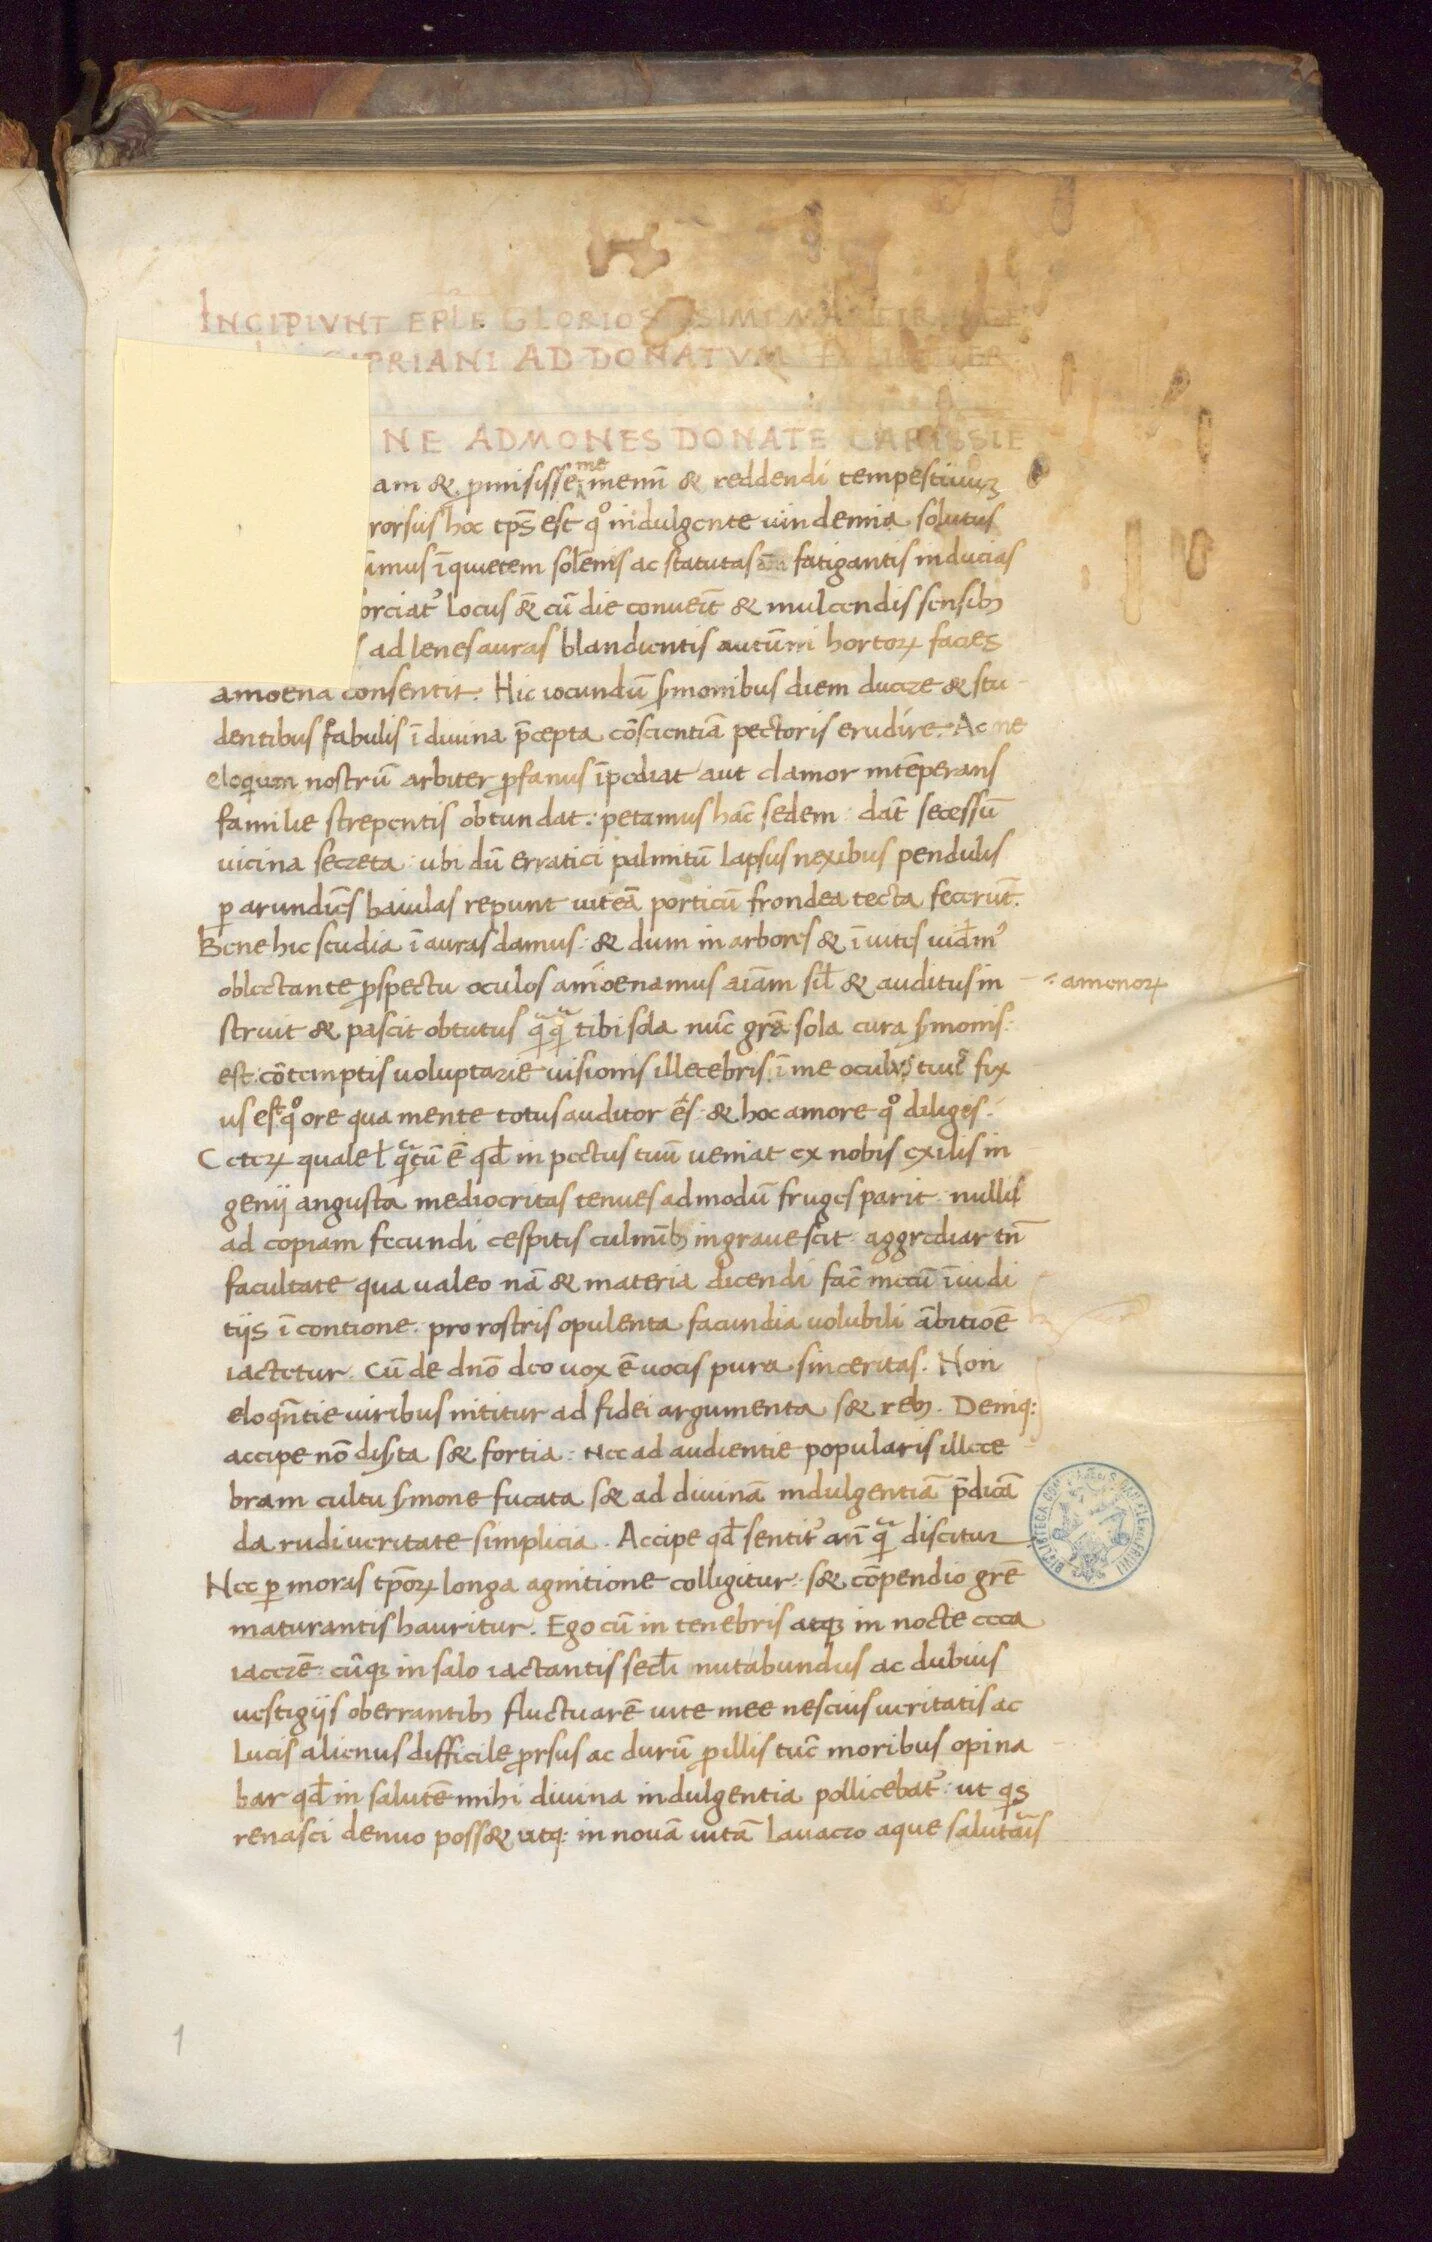 INCIPIVNT EPL̅E GLORIOSISSIMI MARTIRIS
CIPRIANI AD DONATVM FELICITER
NE ADMONES DONATE CARISSIE
am & p̲misisse me memī & reddendi tempestiuuꝫ
rorsus hoc tp̅s est qͦ indulgente uindemia solutus
imus ī quietem solēnis ac statutas fatigantis inducias
orciat᷒ Locus &̄ cū die conueīt & mulcendis sensibꝫ
ad lenes auras blandientis autūni hortoꝝ facies
amoena consentit. Hic iocundū ẜmonibus diem ducere & stu-
dentibus fabulis ī diuina p̄cepta cōscientiā pectoris erudire. Ac ne
eloquum nostrū arbiter ꝓfanus īpediat aut clamor intēperans
familie strepentis obtundat. petamus hāc sedem. dāt secessū
uicina secreta. ubi dū erratici palmitū lapsus nexibus pendulis
ꝑ arundīes baiulas repunt uiteā porticū frondea tecta fecerūt.
Bene hic studia ī aures damus. & dum in arbores & ī uites uidem᷒
oblectante ꝓspectu oculos amoenamus aīam sil̄ & auditus in-
amenoꝝ
struit & pascit obtutus qͣqͣ tibi sola nūc gr̄a sola cura ẜmonis.
est. cōtemptis uoluptarie uisionis illecebris. ī me oculus tuus fix
us est qͦ ore qua mente totus auditor ēs. & hoc amore qͦ diliges.
Ceteꝝ quale ł q̣ͣtū ē qd̄ in pectus tuū ueniat ex nobis exilis in-
genij angusta mediocritas tenues admodū fruges parit. nullis
ad copiam fecundi cespitis culmībꝫ ingrauescit. aggrediar tn̄
facultate qua ualeo nā & materia dicendi fac̄ mecū ī iudi
tijs ī contione. pro rostris opulenta facundia uolubili ābitiōe
iactetur. Cū de dn̄o deo uox ē uocis pura sinceritas. Non
eloqn̄tie uiribus nititur ad fidei argumenta s& rebꝫ. Deniqꝫ
accipe nō diẜta s& fortia. Nec ad audientie popularis illece
bram cultu ẜmone fucata s& ad diuinā indulgentiā p̄dicā
da rudi ueritate simplicia. Accipe qd̄ sentit᷒ an̄ qͣ discitur
Nec ꝑ moras tp̄oꝝ longa agnitione colligitur. s& cōpendio grē
maturantis hauritur. Ego cū in tenebris atqꝫ in nocte ceca
iacerē. cūqꝫ in salo iactantis secl̄i nutabundus ac dubius
uestigijs oberrantibꝫ fluctuarē uite mee nescius ueritatis ac
Lucis alienus difficile ꝓrsus ac durū ꝓ illis tūc moribus opina
bar qd̄ in salutē mihi diuina indulgentia pollicebat᷒. ut qis
renasci denuo poss& utqꝫ in nouā uitā lauacro aque salutāis
1